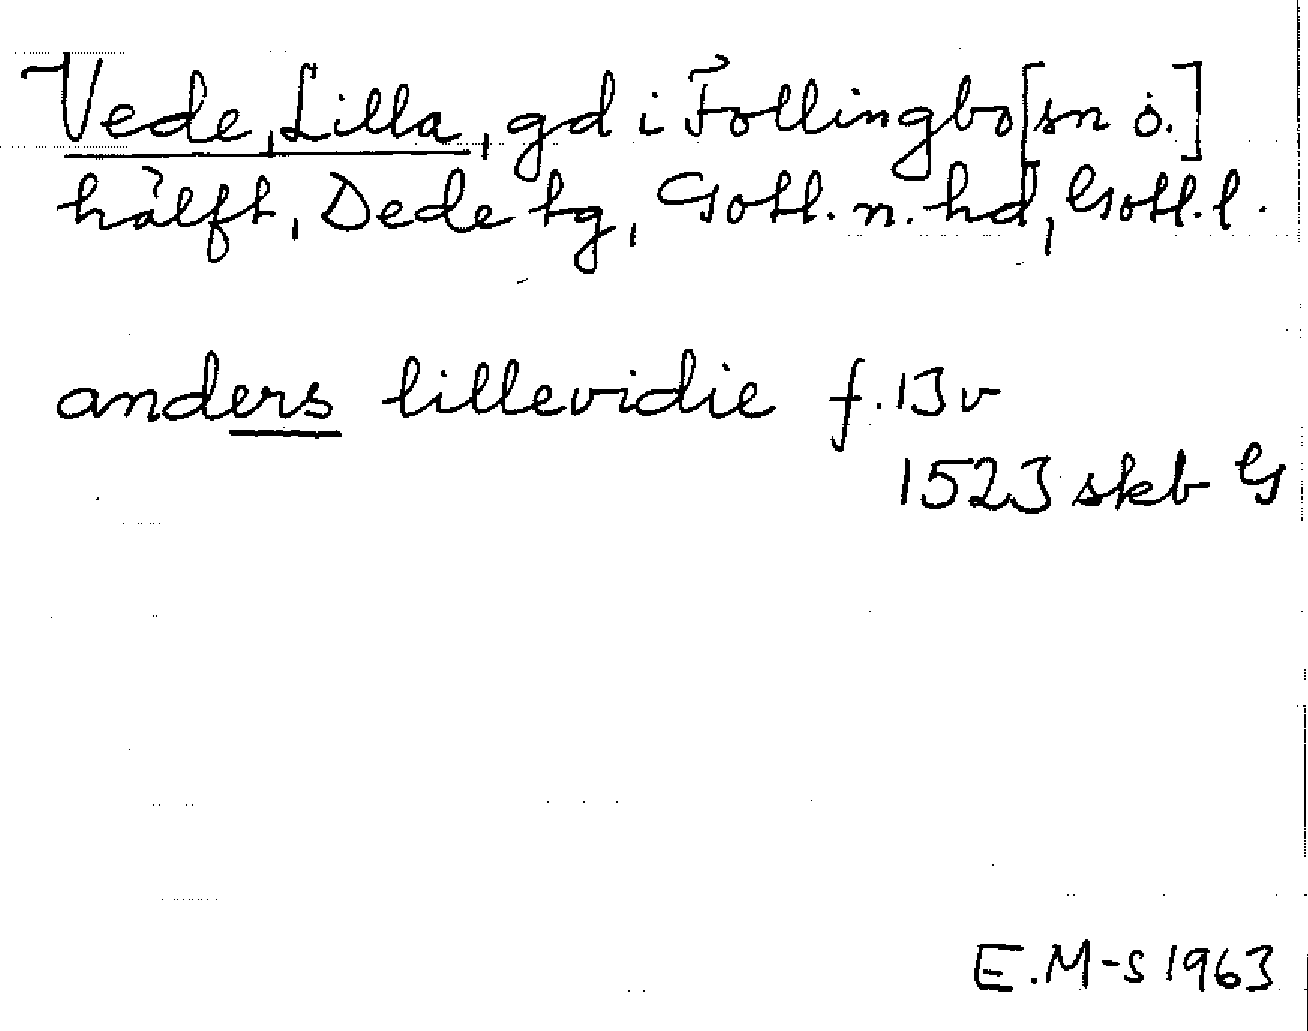 Vede, Lilla, gd i Follingbo [sn ö.]
hälft, Dede tg, Gotl. n. hd, Gotl. l.
anders lillevidie f. 13v
1523 skb G
E.M-S 1963